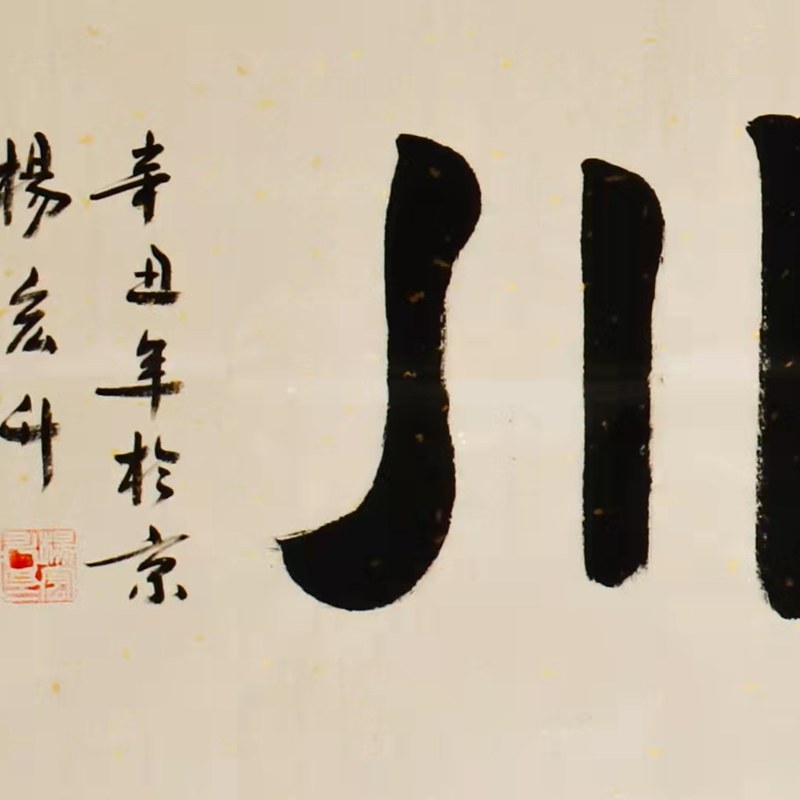 川
辛丑年於京
楊宏升